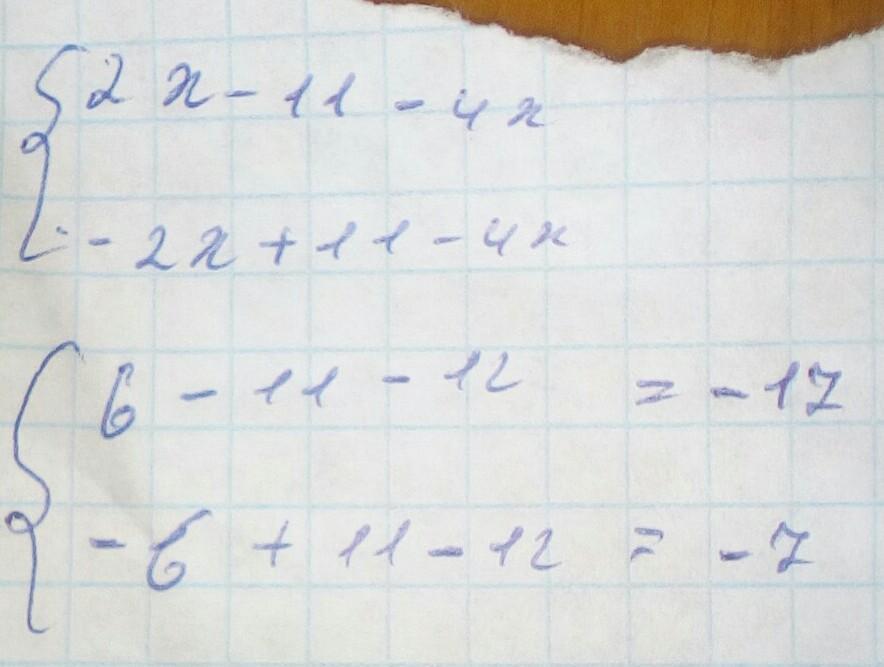 2x - 11 - 4x
- 2x + 11 - 4x
6 - 11 - 12 = - 17
- 6 + 11 - 12 = - 7